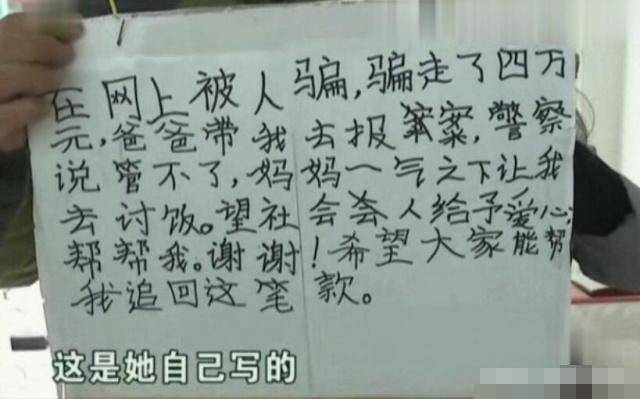 在网上被人骗,骗走了四万
元,爸爸带我去报案,警察
说管不了,妈妈一气之下让我
去讨饭。望社会人给予爱心,
帮帮我。谢谢!希望大家能帮
我追回这笔款。
这是她自己写的